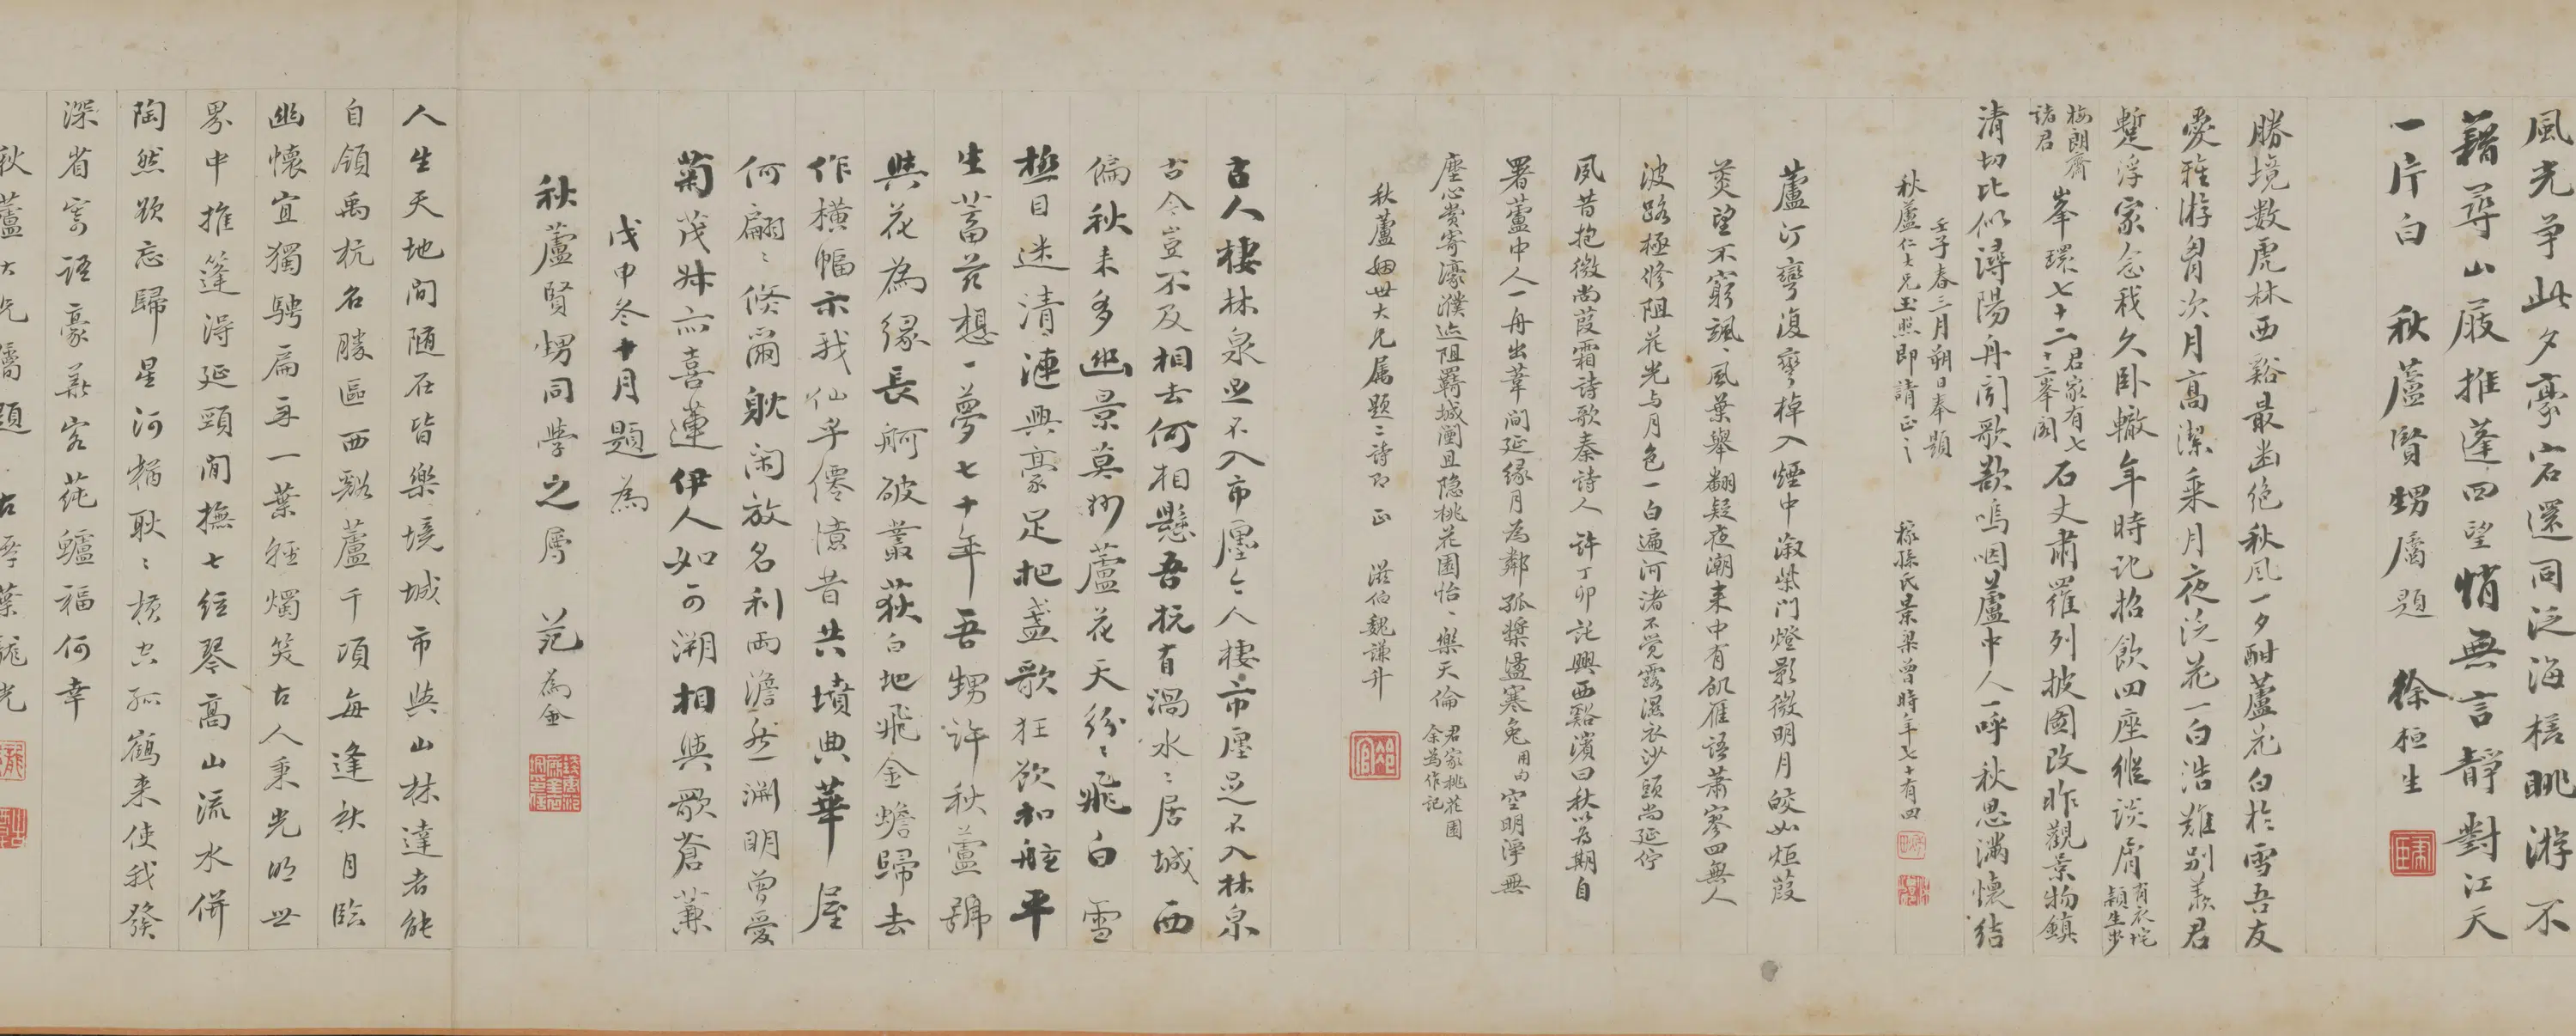 風光爭此夕豪宕還同泛海槎眺游不
藉尋山屐推蓬四望悄無言靜對江天
一片白 秋蘆賢甥屬題 徐桓生
勝境數虎林西谿最幽絕秋風一夕酣蘆花白於雪吾友
愛雅游胷次月高潔乘月夜泛花一白浩難別羨君
蹔浮家念我久臥轍年時記招飲四座縱談屑
梅朗齋諸君 峯環七十二 君家有七十二峯閣 石丈肅羅列披圖改昨觀景物鎮
清切比似潯陽舟閒歌歎嗚咽蘆中人一呼秋思滿懷結
壬子春三月朔日奉題
秋蘆仁大兄玉照即請正之 稼孫氏景梁曾時年七十有四
蘆汀彎復彎棹入煙中漵柴門燈影微明月皎如炬葭
菼望不窮颯颯風葉舉翻疑夜潮來中有飢雁語蕭寥四無人
波路極修阻花光与月色一白遍河渚不覺露濕衣沙頭尚延佇
夙昔抱微尚葭霜詩歌秦詩人許丁卯託興西谿濱曰秋以為期自
署蘆中人一舟出葦間延緣月為鄰孤槳盪寒兔 用句 空明淨無
塵心賞寄濠濮迹阻羇城闉且隐桃花園怡怡樂天倫 君家桃花園余為作記
秋蘆姻世大兄属題二詩即正 滋伯魏謙升
古人棲林泉迹不入市廛今人棲市廛迹不入林泉
古今豈不及相去何相懸吾杭有渦水水居城西
偏秋来多幽景莫妙蘆花天紛紛飛白雪
極目迷清漣興豪足把盞歌狂欲扣舷平
生蓄茲想一夢七十年吾甥許秋蘆號
與花為緣長舸破叢荻白地飛金蟾歸去
作橫幅示我仙乎僊憶昔共墳典華屋
何翩翩倏爾躭閑放名利兩澹然淵明曾愛
菊茂叔亦喜蓮伊人如可溯相與歌蒼蒹
戊申冬十月題為
秋蘆賢甥同學之屬 范為金
人生天地間隨在皆樂境城市與山林達者能
自領禹杭名勝區西谿蘆千頃每逢秋月臨
幽懷宜獨騁扁舟一葉輕燭笑古人秉光明世
界中推篷得延頸閒撫七絃琴高山流水併
陶然欲忘歸星河猶耿耿橫空孤鶴来使我發
深省寄語豪華客蓴鱸福何幸
秋蘆大兄屬題 古 葉龍光